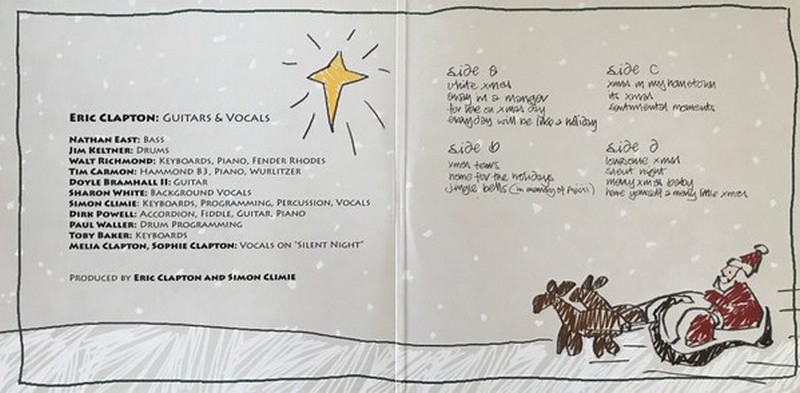 ERIC CLAPTON: GUITARS & VOCALS
NATHAN EAST: BASS
JIM KELTNER: DRUMS
WALT RICHMOND: KEYBOARDS, PIANO, FENDER RHODES
TIM CARMON: HAMMOND B3, PIANO, WURLITZER
DOYLE BRAMHALL II: GUITAR
SHARON WHITE: BACKGROUND VOCALS
SIMON CLIMIE: KEYBOARDS, PROGRAMMING, PERCUSSION, VOCALS
DIRK POWELL: ACCORDION, FIDDLE, GUITAR, PIANO
PAUL WALLER: DRUM PROGRAMMING
TOBY BAKER: KEYBOARDS
MELIA CLAPTON, SOPHIE CLAPTON: VOCALS ON 'SILENT NIGHT'
PRODUCED BY ERIC CLAPTON AND SIMON CLIMIE
side a
white xmas
away in a manger
for love on xmas day
everyday will be like a holiday
side b
xmas tears
home for the holidays
jingle bells (in memory of avicii)
side c
xmas in my hometown
its xmas
sentimental moments
side d
lonesome xmas
silent night
merry xmas baby
have yourself a merry little xmas